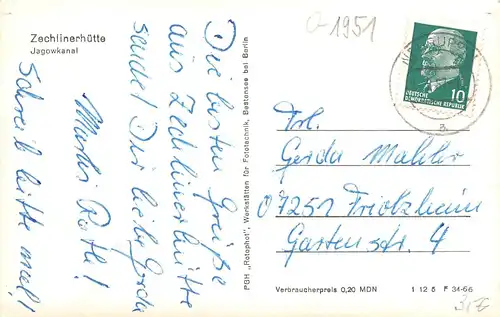 Zechlinerhütte
Jagowkanal
O-1951
Die besten Grüße
aus Zechlinerhütte
sendet Dir liebe Gerda
Schreib bitte mal!
PGH „Rotophot", Werkstätten für Fototechnik, Bestensee bei Berlin
10
DEUTSCHE
DEMOKRATISCHE REPUBLIK
Frl.
Gerda Mahler
07251
Gartenstr. 4
Verbraucherpreis 0,20 MDN
1 12 5 F 34-66